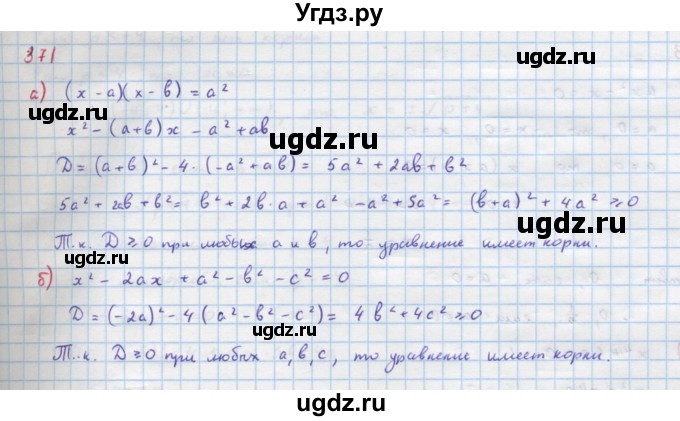 Угдз.ру
371
ugdz.ru
а) (x - a)(x - в) = a²
ugdz.ru
x² - (a+в)x - a² + aв
ugdz.ru
ugdz.ru
D = (a+в)² - 4·(-a² + aв) = 5a² + 2aв + в²
ugdz.ru
5a² + 2aв + в² = в² + 2в·a + a² - a² + 5a² = (в+a)² + 4a² ≥ 0
ugdz.ru
Т.к. D ≥ 0 при любых a и в, то уравнение имеет корни.
ugdz.ru
б) x² - 2ax + a² - в² - c² = 0
ugdz.ru
D = (-2a)² - 4(a² - в² - c²) = 4в² + 4c² ≥ 0
ugdz.ru
Т.к. D ≥ 0 при любых a, в, c, то уравнение имеет корни.
ugdz.ru
ugdz.ru